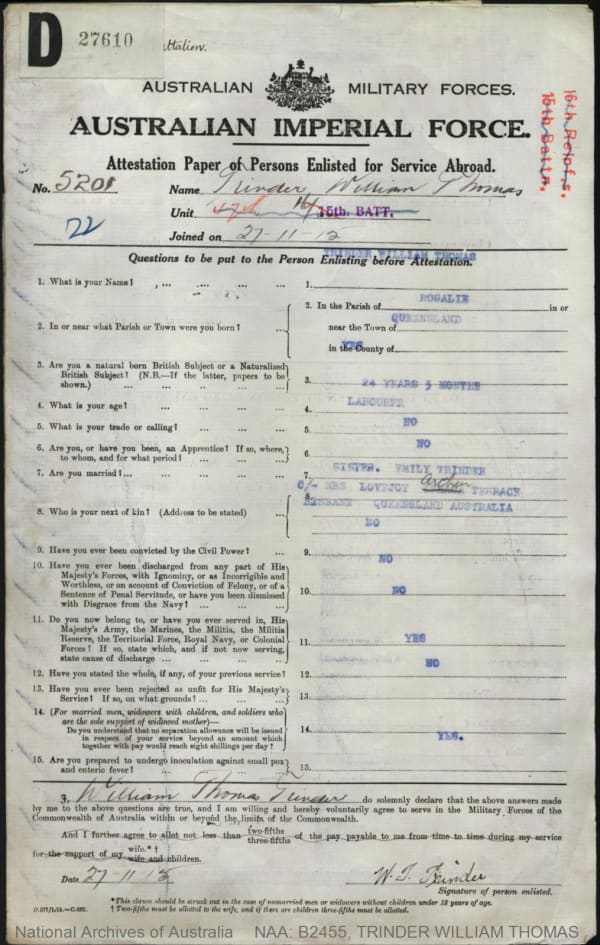 D 27610
Battalion.
AUSTRALIAN MILITARY FORCES.
AUSTRALIAN IMPERIAL FORCE.
16th Reinf's.
15th Battn.
Attestation Paper of Persons Enlisted for Service Abroad.
No. 5201 Name Trinder, William Thomas
Unit 47th 16/15th. BATT.
72
Joined on 27-11-15
Questions to be put to the Person Enlisting before Attestation.
TRINDER WILLIAM THOMAS
1. What is your Name? 1.
ROSALIE
2. In or near what Parish or Town were you born? 2. In the Parish of in or
QUEENSLAND
near the Town of
YES
in the County of
3. Are you a natural born British Subject or a Naturalized British Subject? (N.B.—If the latter, papers to be shown.) 3.
24 YEARS 5 MONTHS
4. What is your age? 4.
LABOURER
5. What is your trade or calling? 5.
NO
6. Are you, or have you been, an Apprentice? If so, where, to whom, and for what period? 6.
NO
7. Are you married? 7.
SISTER. EMILY TRINDER
C/- MRS LOVEJOY Archer TERRACE
8. Who is your next of kin? (Address to be stated) 8.
BRISBANE QUEENSLAND AUSTRALIA
NO
9. Have you ever been convicted by the Civil Power? 9.
NO
10. Have you ever been discharged from any part of His Majesty's Forces, with Ignominy, or as Incorrigible and Worthless, or on account of Conviction of Felony, or of a Sentence of Penal Servitude, or have you been dismissed with Disgrace from the Navy? 10.
NO
11. Do you now belong to, or have you ever served in, His Majesty's Army, the Marines, the Militia, the Militia Reserve, the Territorial Force, Royal Navy, or Colonial Forces? If so, state which, and if not now serving, state cause of discharge 11.
YES
12. Have you stated the whole, if any, of your previous service? 12.
NO
13. Have you ever been rejected as unfit for His Majesty's Service? If so, on what grounds? 13.
14. (For married men, widowers with children, and soldiers who are the sole support of widowed mother)—
Do you understand that no separation allowance will be issued in respect of your service beyond an amount which together with pay would reach eight shillings per day? 14.
YES.
15. Are you prepared to undergo inoculation against small pox and enteric fever? 15.
I, William Thomas Trinder do solemnly declare that the above answers made
by me to the above questions are true, and I am willing and hereby voluntarily agree to serve in the Military Forces of the
Commonwealth of Australia within or beyond the limits of the Commonwealth.
And I further agree to allot not less than two-fifths three-fifths of the pay payable to me from time to time during my service
for the support of my wife.*† wife and children.
Date 27-11-15 W. T. Trinder
Signature of person enlisted.
*This clause should be struck out in the case of unmarried men or widowers without children under 18 years of age.
† Two-fifths must be allotted to the wife, and if there are children three-fifths must be allotted.
National Archives of Australia NAA: B2455, TRINDER WILLIAM THOMAS